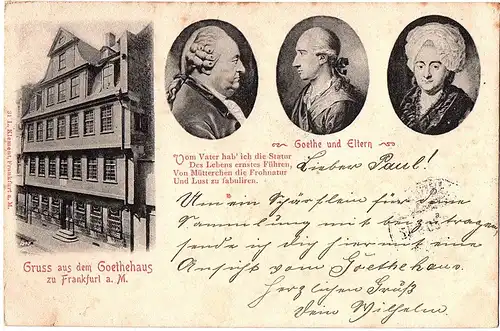 Goethe und Eltern
Vom Vater hab' ich die Stator
Des Lebens ernstes Führen,
Von Mütterchen die Frohnatur
Und Lust zu fabuliren.
31 L. Klement, Frankfurt a. M.
Gruss aus dem Goethehaus
zu Frankfurt a. M.
Lieber Paul!
Um ein Schärflein für deine
Sammlung mit beizutragen,
sende ich dir hier mit eine
Ansicht vom Goethehaus.
Herzlichen Gruß
Dein Wilhelm.